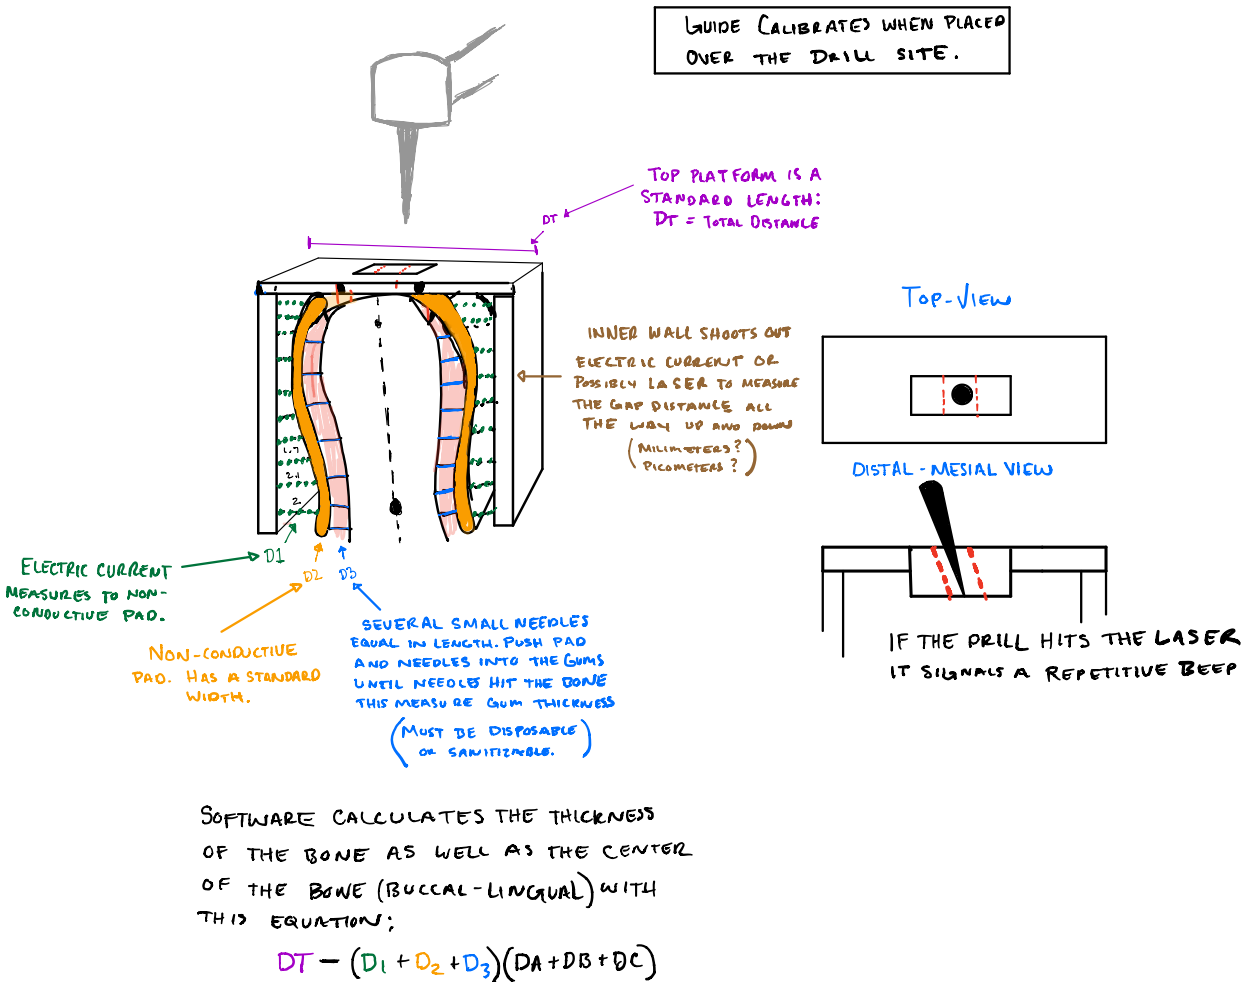 GUIDE CALIBRATES WHEN PLACED
OVER THE DRILL SITE.
TOP PLATFORM IS A
STANDARD LENGTH:
DT = TOTAL DISTANCE
DT
TOP-VIEW
INNER WALL SHOOTS OUT
ELECTRIC CURRENT OR
POSSIBLY LASER TO MEASURE
THE GAP DISTANCE ALL
THE WAY UP AND DOWN
(MILIMETERS?
PICOMETERS?)
1.7
2.1
2
DISTAL-MESIAL VIEW
IF THE DRILL HITS THE LASER
IT SIGNALS A REPETITIVE BEEP
D1
D2
D3
ELECTRIC CURRENT
MEASURES TO NON-
CONDUCTIVE PAD.
NON-CONDUCTIVE
PAD. HAS A STANDARD
WIDTH.
SEVERAL SMALL NEEDLES
EQUAL IN LENGTH. PUSH PAD
AND NEEDLES INTO THE GUMS
UNTIL NEEDLES HIT THE BONE
THIS MEASURE GUM THICKNESS
(MUST BE DISPOSABLE
OR SANITIZABLE.)
SOFTWARE CALCULATES THE THICKNESS
OF THE BONE AS WELL AS THE CENTER
OF THE BONE (BUCCAL-LINGUAL) WITH
THIS EQUATION:
DT - (D1 + D2 + D3)(DA + DB + DC)